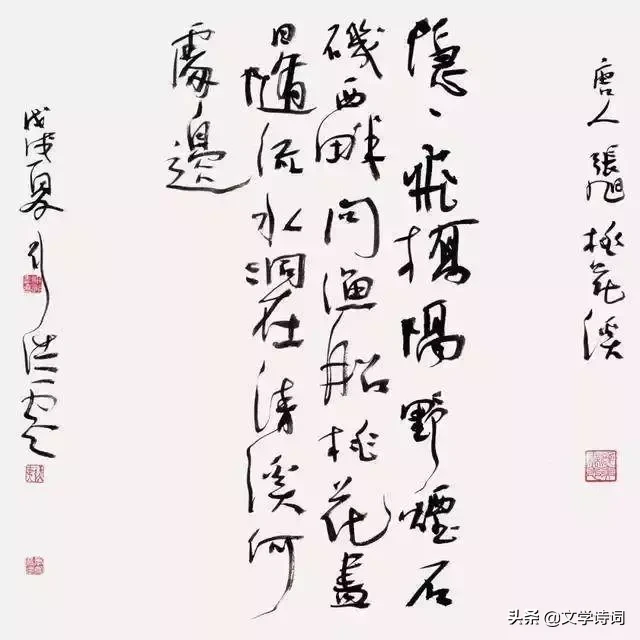 唐人張旭桃花溪
隱、飛橋隔野煙石
磯西畔問漁船桃花盡
日隨流水洞在清溪何
處邊
戊戌夏
头条 @文学诗词